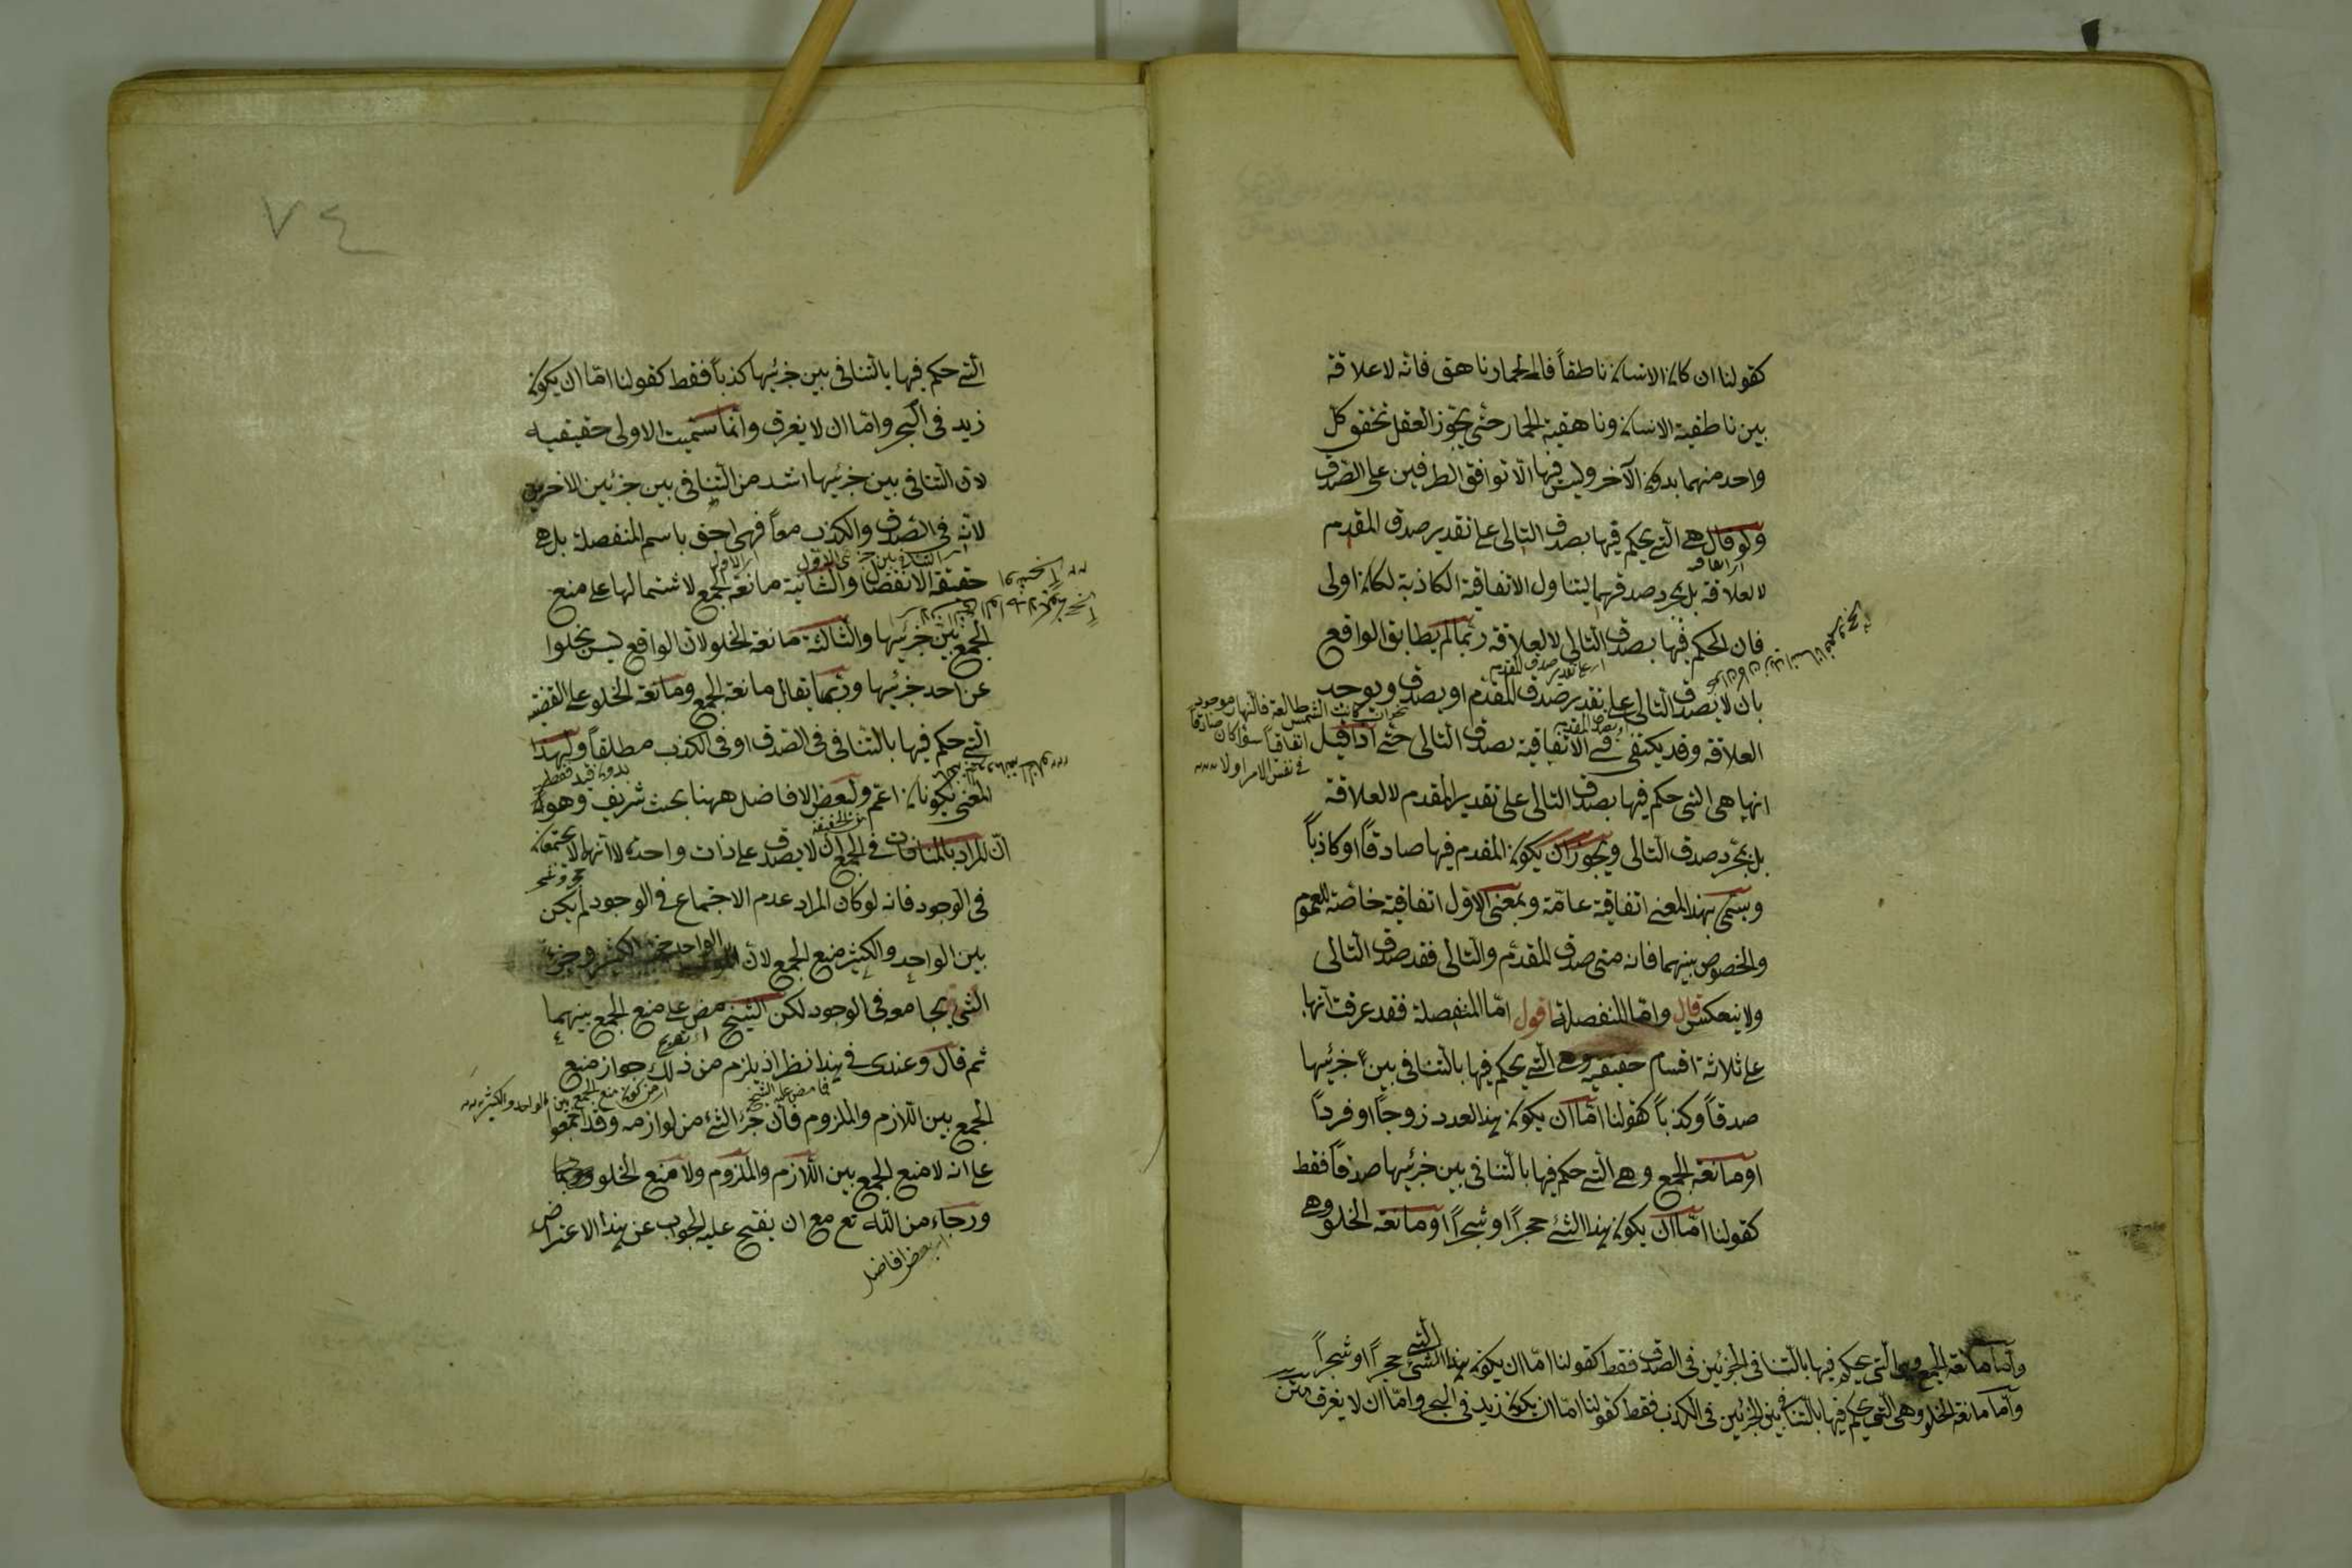 كقولنا ان كان الانسان ناطقاً فالحمار ناهق فانه لا علاقة
بين ناطقية الانسان وناهقية الحمار حتى يجوز العقل تحقق كل
واحد منهما بدون الآخر وليس فيها الا توافق الطرفين على الصدق
ولو قال هي التي يحكم فيها بصدق التالى على تقدير صدق المقدم
لا لعلاقة بل بمجرد صدقهما ليتناول الاتفاقية الكاذبة لكان اولى
فان الحكم فيها بصدق التالى لا لعلاقة ربما لم يطابق الواقع
اى على تقدير صدق المقدم
بان لا يصدق التالى على تقدير صدق المقدم او يصدق ويوجد
نحو ان كانت الشمس طالعة فالنهار موجود
العلاقة وقد يكتفى في الاتفاقية بصدق التالى حتى
اتفاقاً سواء كان صادقاً
في نفس الامر او لا
انها هي التي حكم فيها بصدق التالى على تقدير المقدم لا لعلاقة
بل بمجرد صدق التالى ويجوز ان يكون المقدم فيها صادقاً او كاذباً
ويسمى بهذا المعنى اتفاقية عامة وبمعنى الاول اتفاقية خاصة للعموم
والخصوص بينهما فانه متى صدق المقدم والتالى فقد صدق التالى
ولا ينعكس قال واما المنفصلة اقول اما المنفصلة فقد عرفت انها
على ثلاثة اقسام حقيقية وهي التي يحكم فيها بالتنافى بين جزئيها
صدقاً وكذباً كقولنا اما ان يكون هذا العدد زوجاً او فرداً
او مانعة الجمع وهي التي حكم فيها بالتنافى بين جزئيها صدقاً فقط
كقولنا اما ان يكون هذا الشئ حجراً او شجراً او مانعة الخلو وهي
واما مانعة الجمع وهي التي يحكم فيها بالتنافى الجزئين فى الصدق فقط كقولنا اما ان يكون هذا الشئ حجراً او شجراً
واما مانعة الخلو وهى التي يحكم فيها بالتنافى بين الجزئين فى الكذب فقط كقولنا اما ان يكون زيد فى البحر واما ان لا يغرق متن
٧٤
التي حكم فيها بالتنافى بين جزئيها كذباً فقط كقولنا اما ان يكون
زيد فى البحر واما ان لا يغرق وانما سميت الاولى حقيقيه
لان التنافى بين جزئيها اشد من التنافى بين جزئين الاخريين
لانه فى الصدق والكذب معاً فهى احق باسم المنفصلة بل هى
حقيقة الانفصال والثانية مانعة الجمع لاشتمالها على منع
الجمع بين جزئيها والثالثة مانعة الخلو لان الواقع ليس يخلوا
عن احد جزئيها وربما يقال مانعة الجمع ومانعة الخلو على القضية
التي حكم فيها بالتنافى فى الصدق او فى الكذب مطلقاً ولهذا
بدون قيد فقط
المعنى يكونان اعم ولبعض الافاضل ههنا بحث شريف وهو
ان المراد بالمنافات في الجمع ان لا يصدق على ذات واحدة لا انهما لا يجتمعان
فى الوجود فانه لو كان المراد عدم الاجتماع فى الوجود لم يكن
بين الواحد والكثير منع الجمع لان الواحد جزء الكثير وجزء
الشئ يجامعه فى الوجود لكن الشيخ نص على منع الجمع بينهما
ثم قال وعندى فى هذا نظر اذ يلزم من ذلك جواز منع
اى من كون منع الجمع بين الواحد والكثير
الجمع بين اللازم والملزوم فان جزء الشئ من لوازمه وقد اجمعوا
على انه لا منع الجمع بين اللازم والملزوم ولا منع الخلو
ورجاء من الله تع مع ان يفتح عليه الجواب عن هذا الاعتراض
اى بعض افاضل